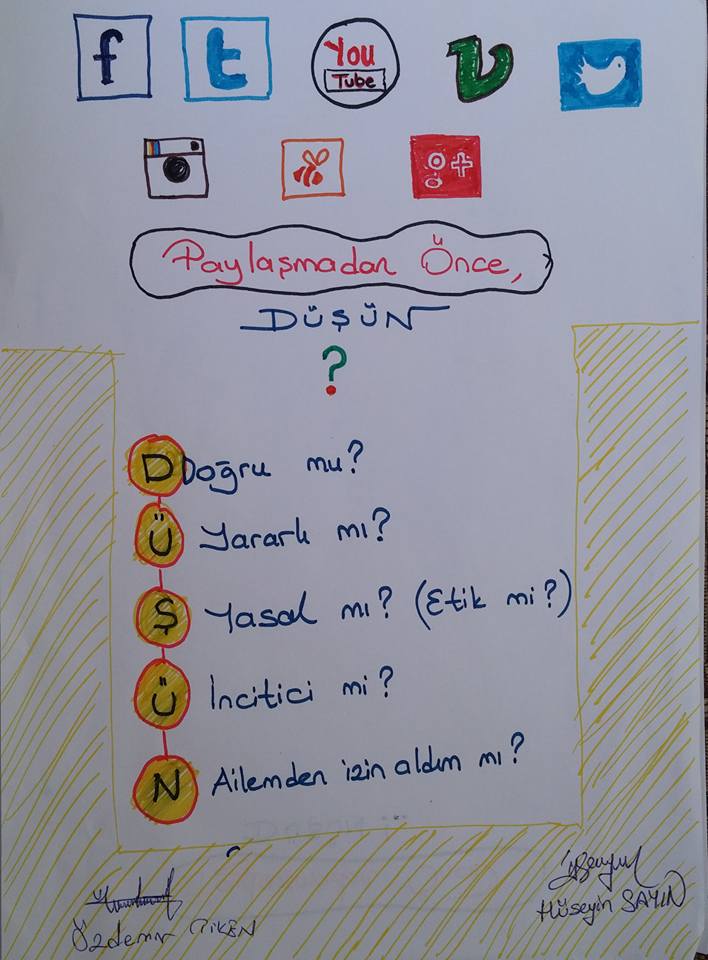 f t You Tube
Paylaşmadan Önce,
DÜŞÜN
?
D Doğru mu?
Ü Yararlı mı?
Ş Yasal mı? (Etik mi?)
Ü İncitici mi?
N Ailemden izin aldım mı?
Özdemir
Hüseyin SAYIN